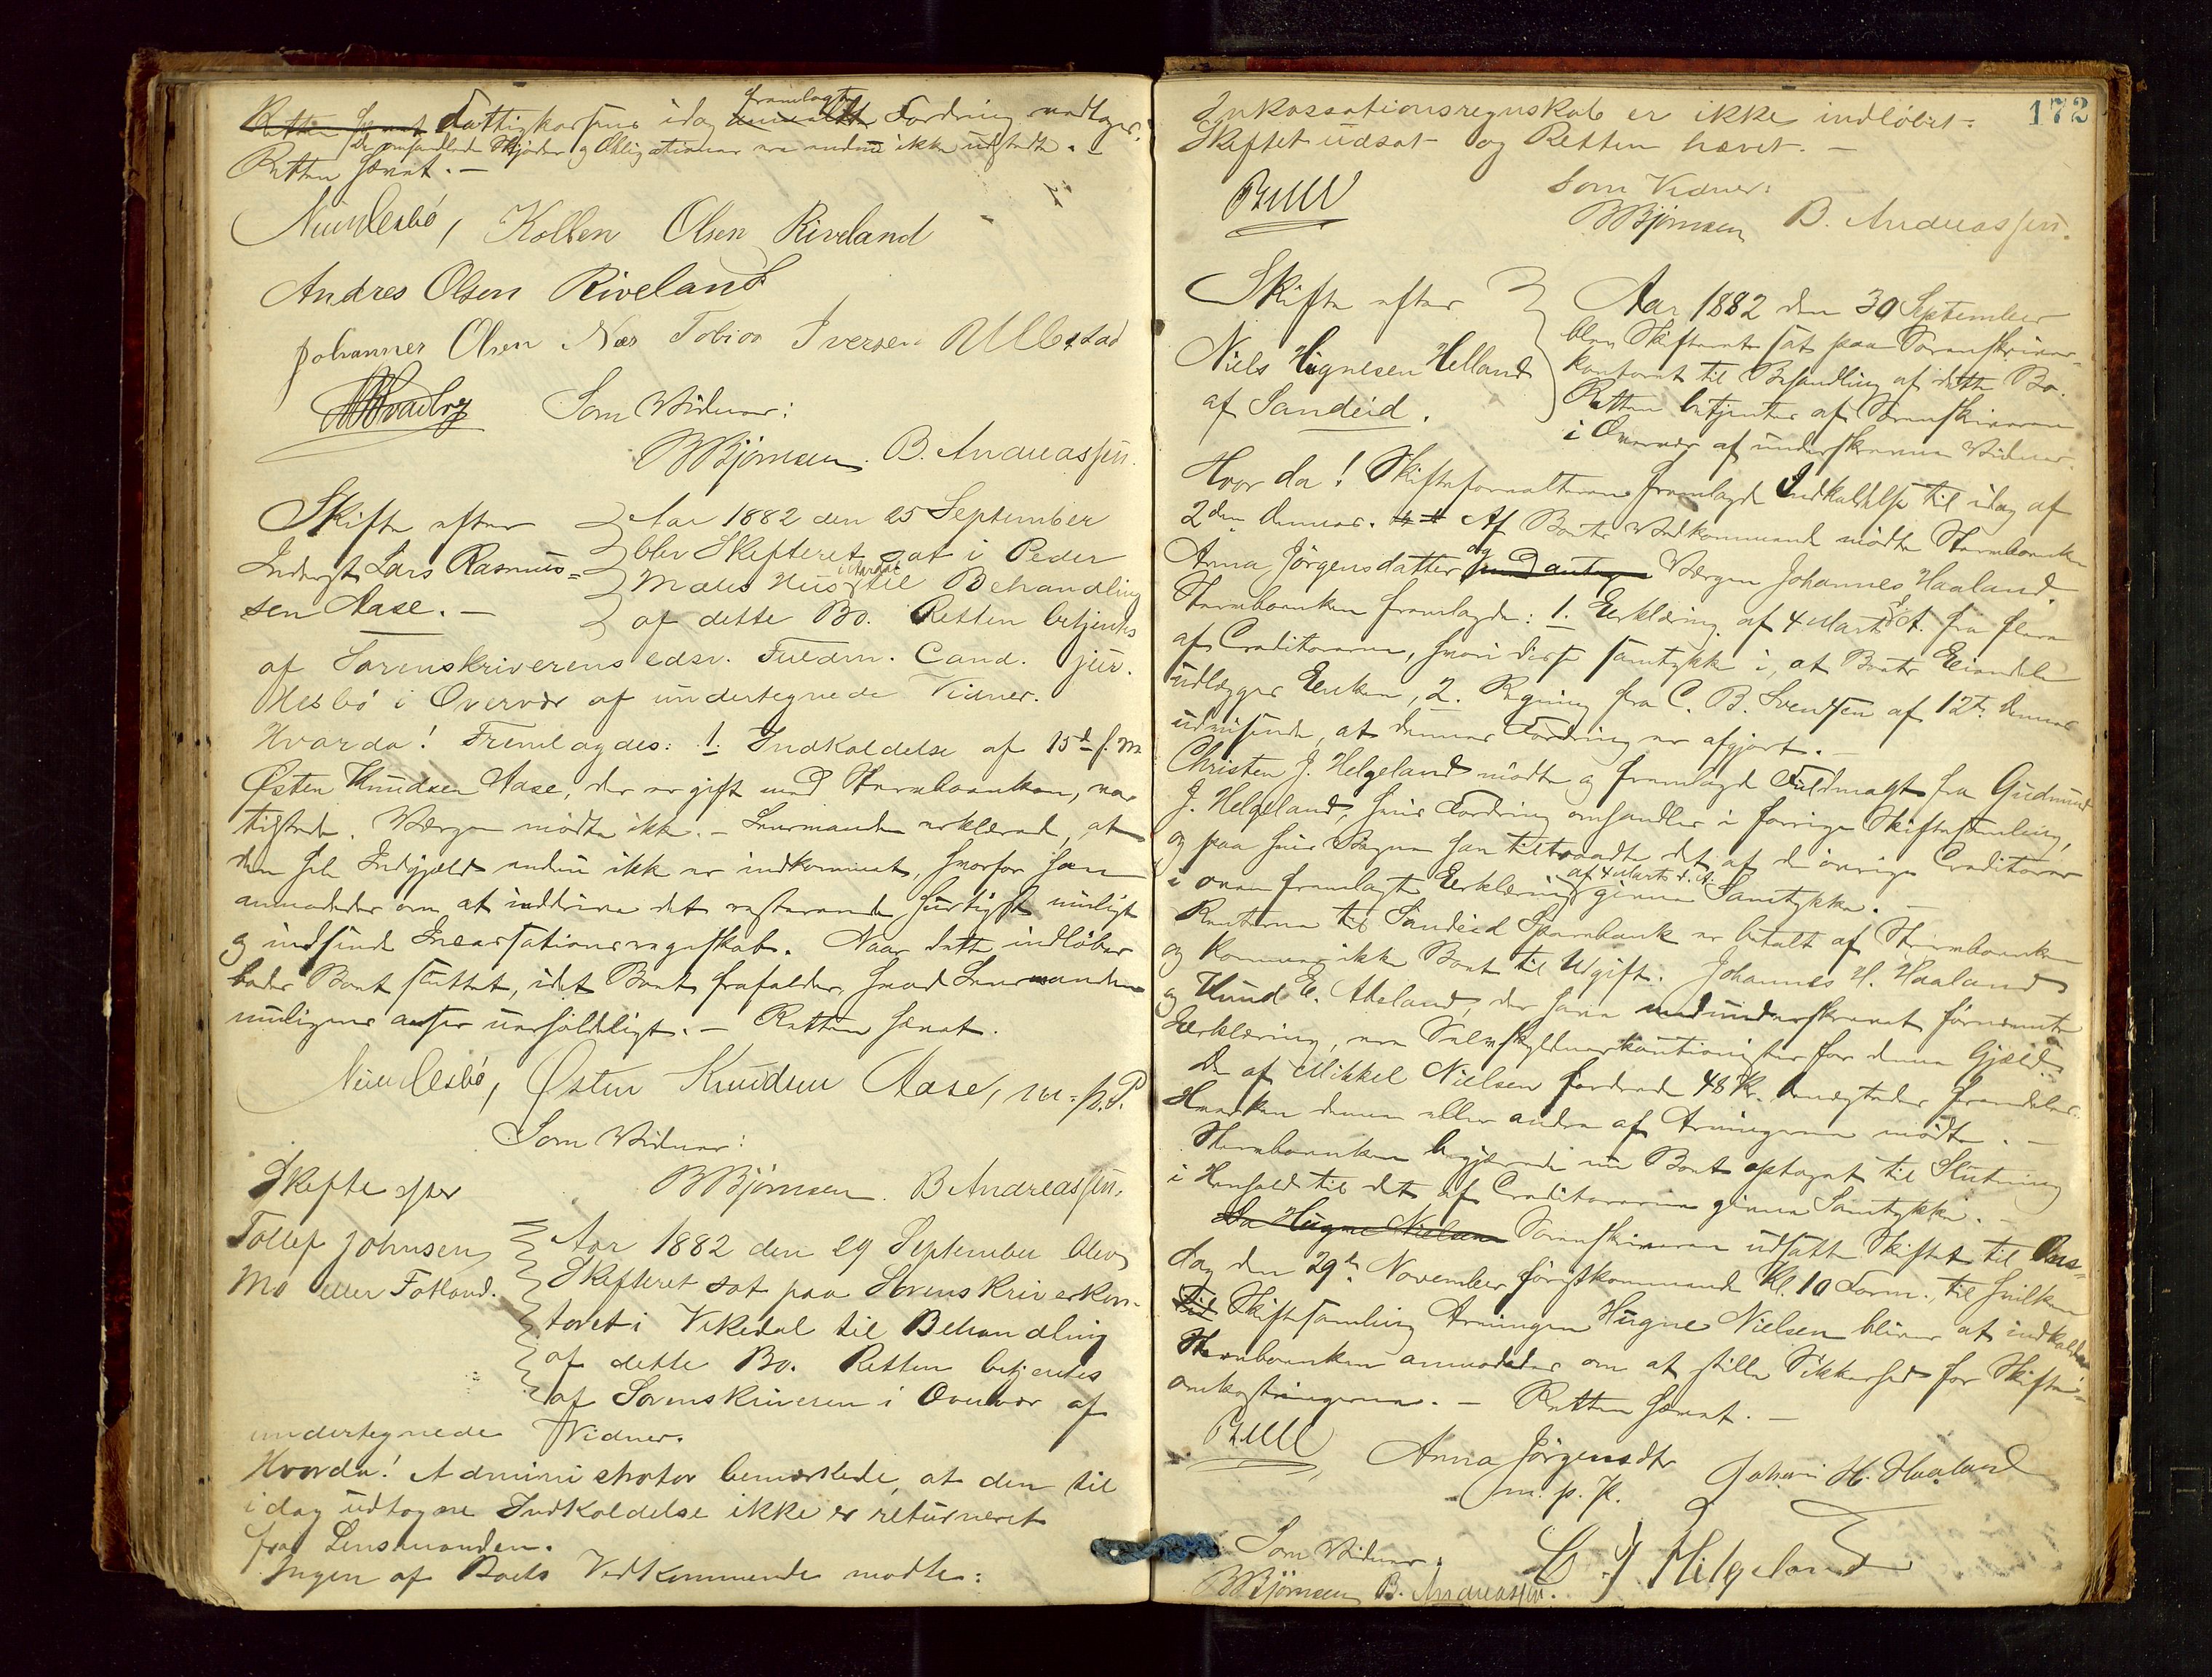 Retten hævet Fattigkassens idag anmeldte fremlagte Fordring vedtages.
De omhandlede Skjøder og Obligationer ere endnu ikke udstedte. -
Retten hævet. -
Kolben Olsen Riveland
Andres Olsen Riveland
Johannes Olsen Næs Tobias Iversen Ullestad
Som Vidner:
BBjörnsen. B. Andreassen.
Skifte efter
Inderst Lars Rasmus-
sen Aase. -
Aar 1882 den 25 September
blev Skifteret sat i Peder
Mælis Hus i Aardal til Behandling
af dette Bo. Retten betjentes
af Sorenskriverens edsv. Fuldm. Cand. jur.
Nesbö i Overvær af undertegnede Vidner.
Hvorda! Fremlagdes: 1. Indkaldelse af 15d f. M
Østen Knudsen Aase, der er gift med Sterboenken, var
tilstede. Værgen mødte ikke. - Lensmanden erklærede, at
den hele Indgjæld endnu ikke er indkommet, hvorfor han
anmodedes om at inddrive det resterende hurtigst muligt
og indsende Incassationsregnskab. Naar dette indløber
bedes Boet sluttet, idet Boet frafalder, hvad Lensmanden
muligens anser uerholdeligt. - Retten hævet.
Østen Knudsen Aase, m. p. P.
Som Vidner:
BBjörnsen. B Andreassen.
Skifte efter
Tollef Johnsen
Mo eller Fatland.
Aar 1882 den 29 September blev
Skifteret sat paa Sorenskriverkon-
toret i Vikedal til Behandling
af dette Bo. Retten betjentes
af Sorenskriveren i Overvær af
undertegnede Vidner.
Hvorda! Administrator bemærkede, at den til
idag udtagne Indkaldelse ikke er returneret
fra Lensmanden.
Ingen af Boets Vedkommende mødte:
172
Inkassationsregnskab er ikke indløbet.
Skiftet udsat og Retten hævet. -
Bull
Som Vidner:
BBjörnsen B. Andreassen.
Skifte efter
Niels Hugnesen Helland
af Sandeid.
Aar 1882 den 30 September
blev Skifteret sat paa Sorenskriver-
kontoret til Behandling af dette Bo.
Retten betjentes af Sorenskriveren
i Overvær af underskrevne Vidner.
Hvor da! Skifteforvalteren fremlagde Indkaldelse til idag af
2den dennes. Af Boets Vedkommende mødte Sterboenken
Anna Jörgensdatter og Værgen Johannes Haaland.
Sterboenken fremlagde: 1. Erklæring af 4 Marts d. A. fra flere
af Creditorerne, hvori disse samtykke i, at Boets Eiendele
udlægges Enken, 2. Regning fra C. B. Svendsen af 12te dennes
udvisende, at dennes Fordring er afgjort. -
Christen J. Helgeland mødte og fremlagde Fuldmagt fra Gudmund
J. Helgeland, hvis Fordring omhandles i forrige Skiftesamling,
og paa hvis Vegne han tiltraadte det af de øvrige Creditorer
i oven fremlagte Erklæring af 4 Marts d. A. givne Samtykke. -
Renterne til Sandeid Sparebank er betalt af Sterboenken
og kommer ikke Boet til Udgift. Johannes H. Haaland
og Knud E. Aheland, der have medunderskrevet førnævnte
Erklæring, ere Selvskyldnerkautionister for denne Gjæld.
De af Mikkel Nielsen fordrede 48 Kr. benægtedes fremdeles.
Hverken denne eller andre af Arvingerne mødte. -
Sterboenken begjærede nu Boet optaget til Slutning
i Henhold til det af Creditorerne givne Samtykke. -
Da Hugne Nielsen Sorenskriveren udsatte Skiftet til Ons-
dag den 29de November førstkommende Kl. 10 Form., til hvilken
til Skiftesamling Arvingen Hugne Nielsen bliver at indkalde.
Sterboenken anmodedes om at stille Sikkerhed for Skifte-
omkostningerne. - Retten hævet. -
Bull
Anna Jörgensdtr
m. p. P.
Johans H. Haaland
Som Vidner:
C. J Helgeland
BBjörnsen B. Andreassen.